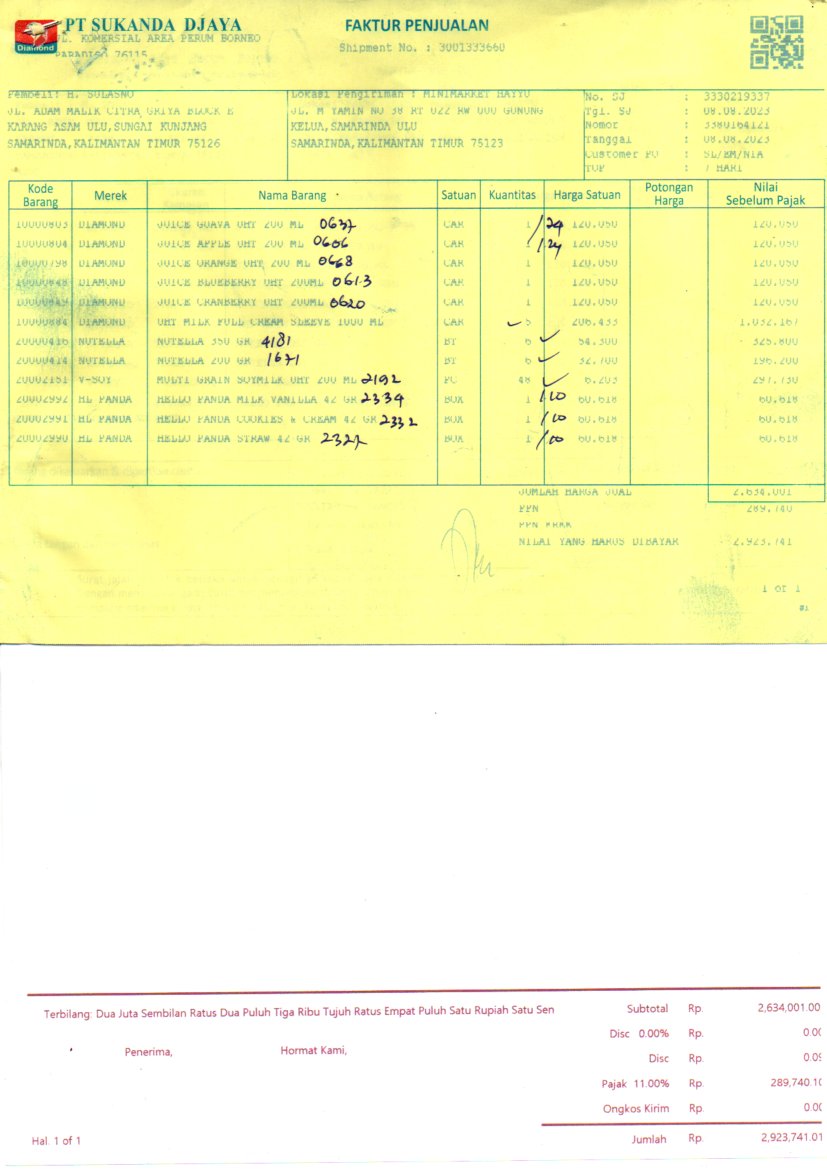 PT SUKANDA DJAYA
FAKTUR PENJUALAN
Diamond
JL. KOMERSIAL AREA PERUM BORNEO
PARADISO 76115
Shipment No. : 3001333660
Pembeli: H. SULASNO
JL. ADAM MALIK CITRA GRIYA BLOCK E
KARANG ASAM ULU,SUNGAI KUNJANG
SAMARINDA,KALIMANTAN TIMUR 75126
Lokasi Pengiriman : MINIMARKET HAYYU
JL. M YAMIN NO 38 RT 022 RW 000 GUNUNG
KELUA,SAMARINDA ULU
SAMARINDA,KALIMANTAN TIMUR 75123
No. SJ : 3330219337
Tgl. SJ : 08.08.2023
Nomor : 3380164121
Tanggal : 08.08.2023
Customer PO : SL/EM/NIA
TOP : 7 HARI
Kode Barang Merek Nama Barang Satuan Kuantitas Harga Satuan Potongan Harga Nilai Sebelum Pajak
10000803 DIAMOND JUICE GUAVA UHT 200 ML 0637 CAR 1 /24 120.050 120.050
10000804 DIAMOND JUICE APPLE UHT 200 ML 0606 CAR 1 /24 120.050 120.050
10000798 DIAMOND JUICE ORANGE UHT 200 ML 0668 CAR 1 120.050 120.050
10000848 DIAMOND JUICE BLUEBERRY UHT 200ML 0613 CAR 1 120.050 120.050
10000849 DIAMOND JUICE CRANBERRY UHT 200ML 0620 CAR 1 120.050 120.050
10000884 DIAMOND UHT MILK FULL CREAM SLEEVE 1000 ML CAR 5 206.433 1.032.167
20000416 NUTELLA NUTELLA 350 GR 4181 BT 6 54.300 325.800
20000414 NUTELLA NUTELLA 200 GR 1671 BT 6 32.700 196.200
20002151 V-SOY MULTI GRAIN SOYMILK UHT 200 ML 2192 PC 48 6.203 297.730
20002992 HL PANDA HELLO PANDA MILK VANILLA 42 GR 2334 BOX 1 /10 60.618 60.618
20002991 HL PANDA HELLO PANDA COOKIES & CREAM 42 GR 2332 BOX 1 /10 60.618 60.618
20002990 HL PANDA HELLO PANDA STRAW 42 GR 2327 BOX 1 /10 60.618 60.618
JUMLAH HARGA JUAL 2.634.001
PPN 289.740
PPN
NILAI YANG HARUS DIBAYAR 2.923.741
1 OF 1
#1
Terbilang: Dua Juta Sembilan Ratus Dua Puluh Tiga Ribu Tujuh Ratus Empat Puluh Satu Rupiah Satu Sen
Subtotal Rp. 2,634,001.00
Disc 0.00% Rp. 0.00
Penerima, Hormat Kami,
Disc Rp. 0.0
Pajak 11.00% Rp. 289,740.10
Ongkos Kirim Rp. 0.00
Hal. 1 of 1
Jumlah Rp. 2,923,741.01